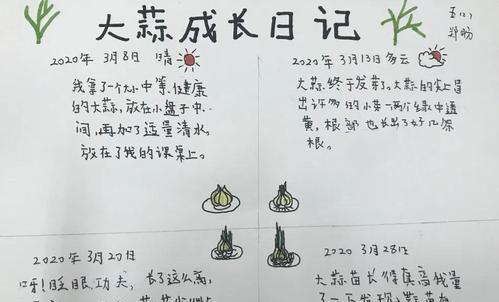 大蒜成长日记
五(2)
郑昀
2020年 3月8日 晴
我拿了一个大小中等、健康
的大蒜,放在小盘子中
间,再加了适量清水,
放在了我的课桌上。
2020年 3月13日 多云
大蒜终于发芽了。大蒜的尖上冒
出许多的小芽一两个绿中透
黄,根部也长出了好几条
根。
2020年 3月20日
呀!眨眼功夫,长了这么高,
2020 3月28日
大蒜苗长得真高我量
了一下发现